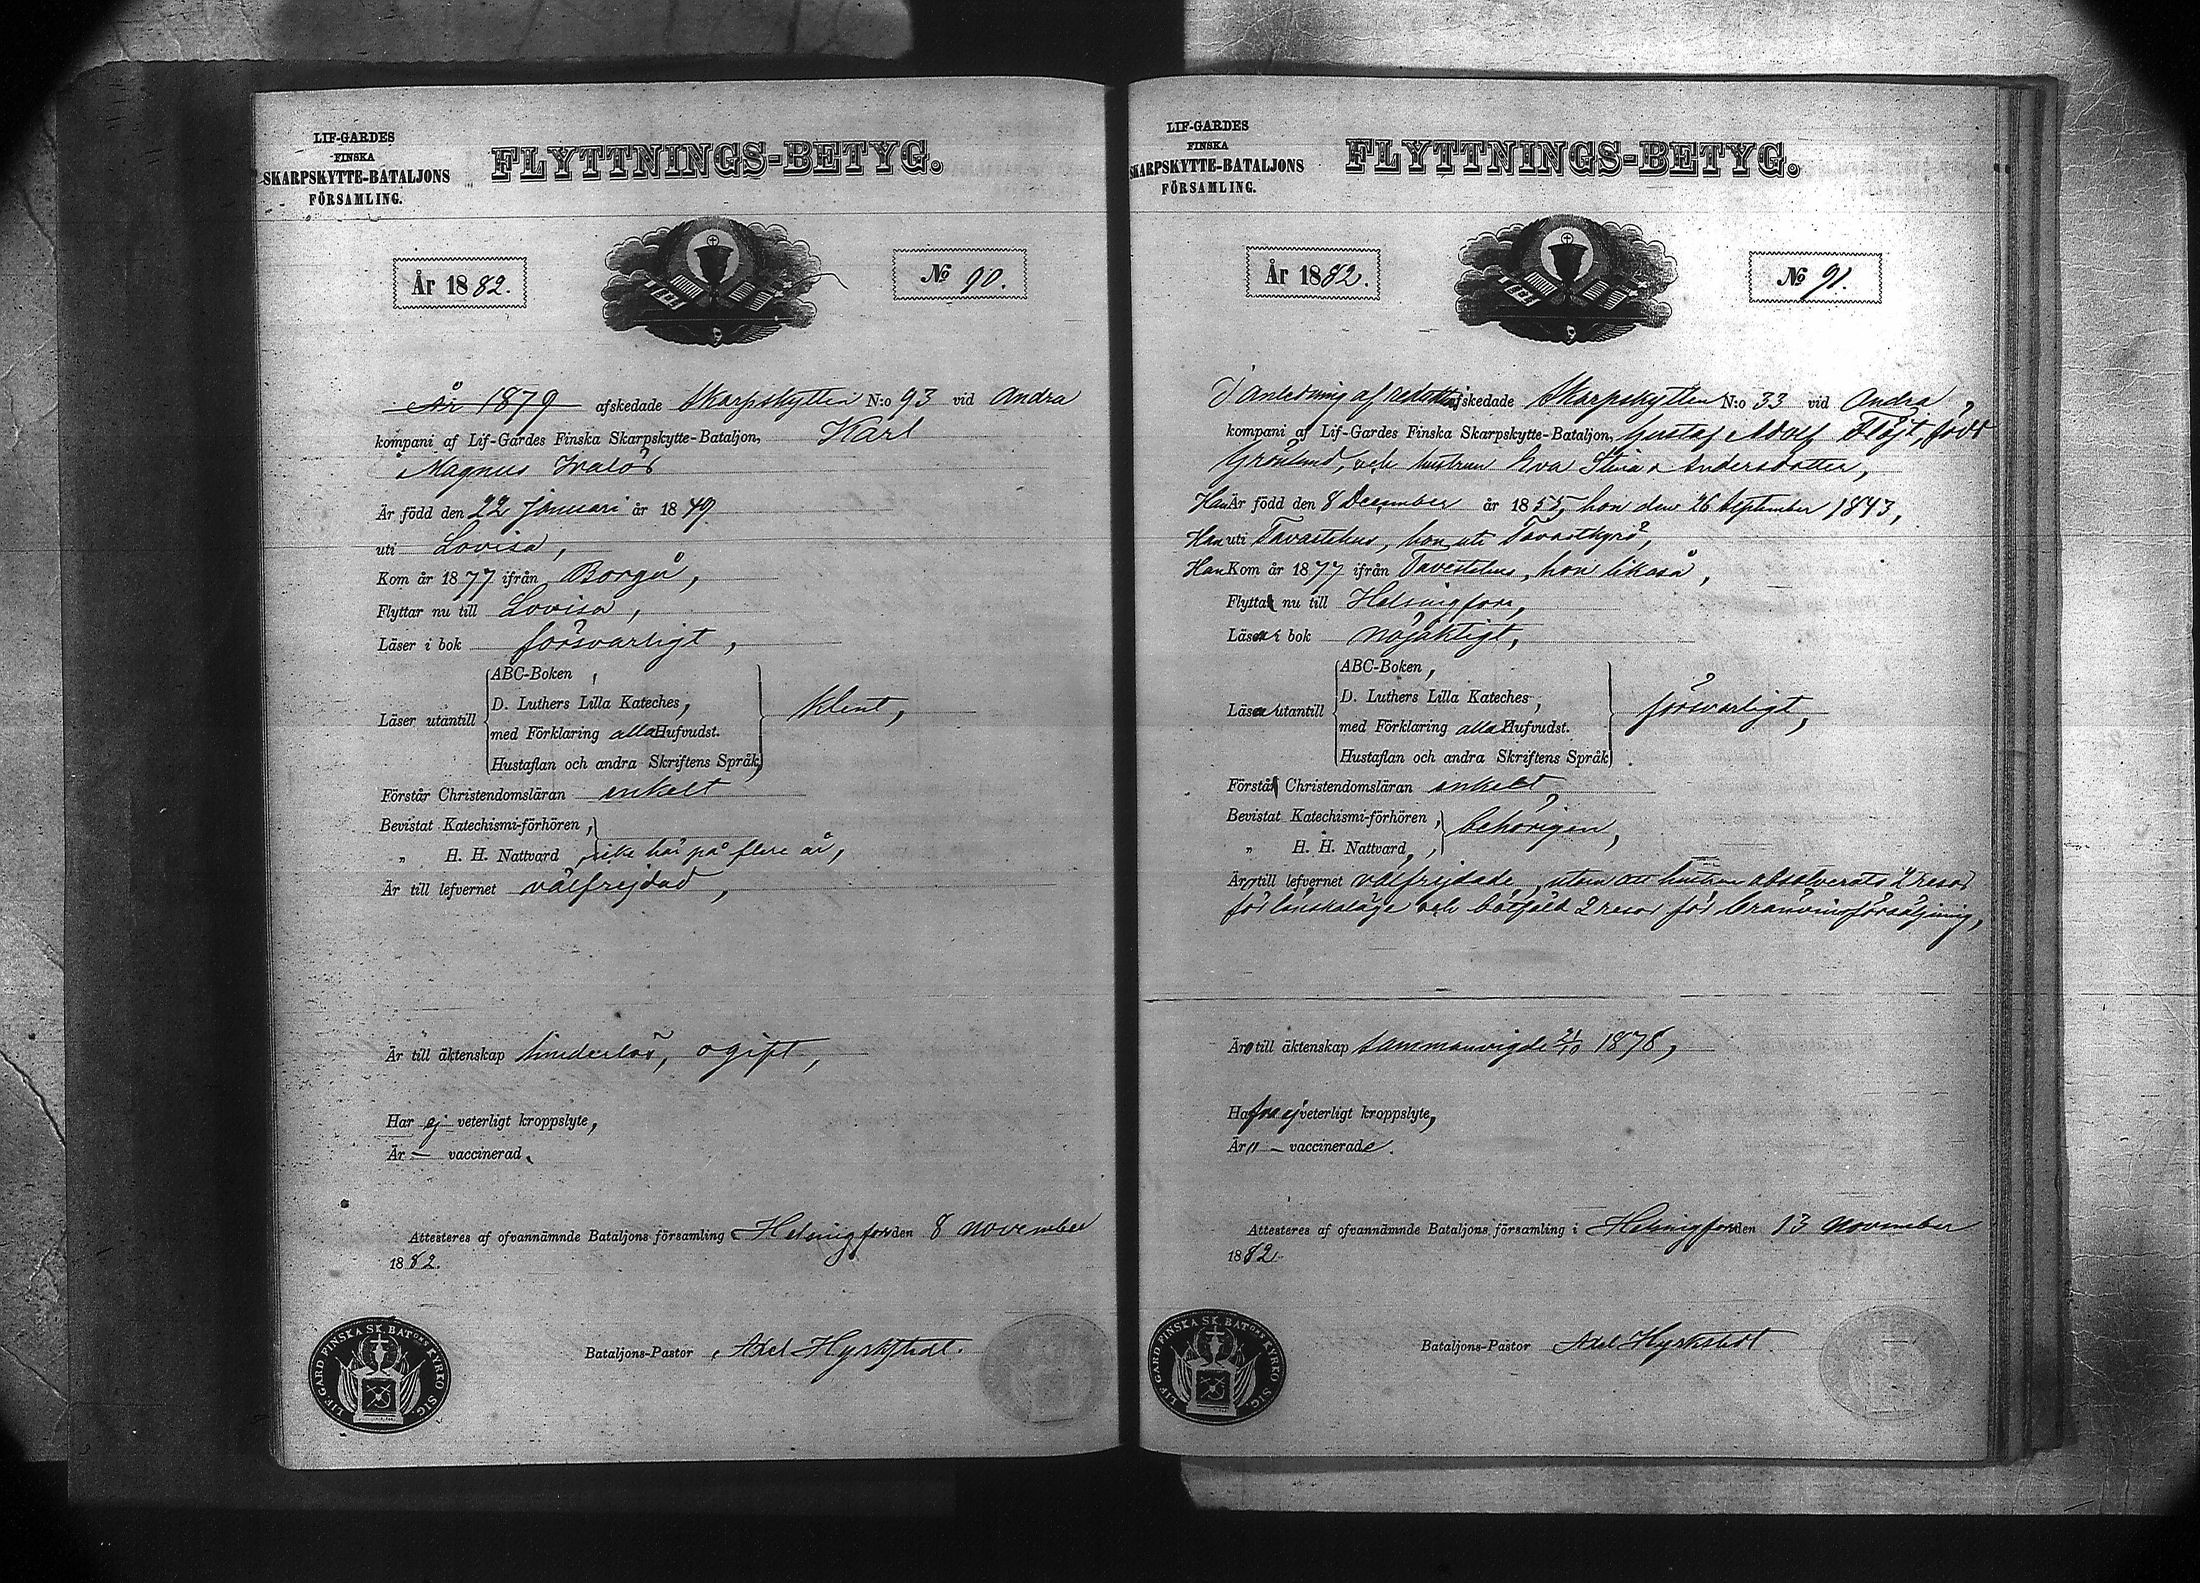 LIF-GARDES
FINSKA
SKARPSKYTTE-BATALJONS
FÖRSAMLING.
FLYTTNINGS-BETYG.
År 1882.
No 90.
År 1879 afskedade Skarpskytten N:o 93 vid Andra
kompani af Lif-Gardes Finska Skarpskytte-Bataljon, Karl
Magnus
Är född den 22 Januari år 1849
uti Lovisa,
Kom år 1877 ifrån Borgå,
Flyttar nu till Lovisa,
Läser i bok försvarligt,
Läser utantill
ABC-Boken,
D. Luthers Lilla Kateches,
med Förklaring alla Hufvudst.
Hustaflan och andra Skriftens Språk,
klent,
Förstår Christendomsläran enkelt
Bevistat Katechismi-förhören,
„ H. H. Nattvard icke här på flere år,
Är till lefvernet välfrejdad,
Är till äktenskap hinderlös, ogift,
Har ej veterligt kroppslyte,
Är — vaccinerad.
Attesteres af ofvannämnde Bataljons församling Helsingfors den 8 November
1882.
Bataljons-Pastor Axel Hyrkstedt.
LIF. GARD. FINSKA SK. BATONS KYRKO SIG.
LIF-GARDES
FINSKA
SKARPSKYTTE-BATALJONS
FÖRSAMLING.
FLYTTNINGS-BETYG.
År 1882.
No 91.
I anledning af afskedade Skarpskytten N:o 33 vid Andra
kompani af Lif-Gardes Finska Skarpskytte-Bataljon, Gustaf Adolf Flöjt, född
Grönlund, och hustrun Eva Stina Andersdotter,
Han Är född den 8 December år 1855, hon den 26 September 1843,
Han uti Tavastehus, hon uti Tavastkyrö,
Han Kom år 1877 ifrån Tavastehus, hon likaså,
Flytta nu till Helsingfors,
Läsa i bok nöjaktigt,
Läsa utantill
ABC-Boken,
D. Luthers Lilla Kateches,
med Förklaring alla Hufvudst.
Hustaflan och andra Skriftens Språk
försvarligt,
Förstå Christendomsläran enkelt
Bevistat Katechismi-förhören,
„ H. H. Nattvard,
behörigen,
Äro till lefvernet välfrejdade, utom att hustrun absolverats 2 resor
för lönskaläge och bötfäld 2 resor för bränvinsförsäljning,
Äro till äktenskap sammanvigde 1878,
Hafva ej veterligt kroppslyte,
Äro — vaccinerade.
Attesteres af ofvannämnde Bataljons församling i Helsingfors den 13 November
1882
Bataljons-Pastor Axel Hyrkstedt.
LIF. GARD. FINSKA SK. BATONS KYRKO SIG.